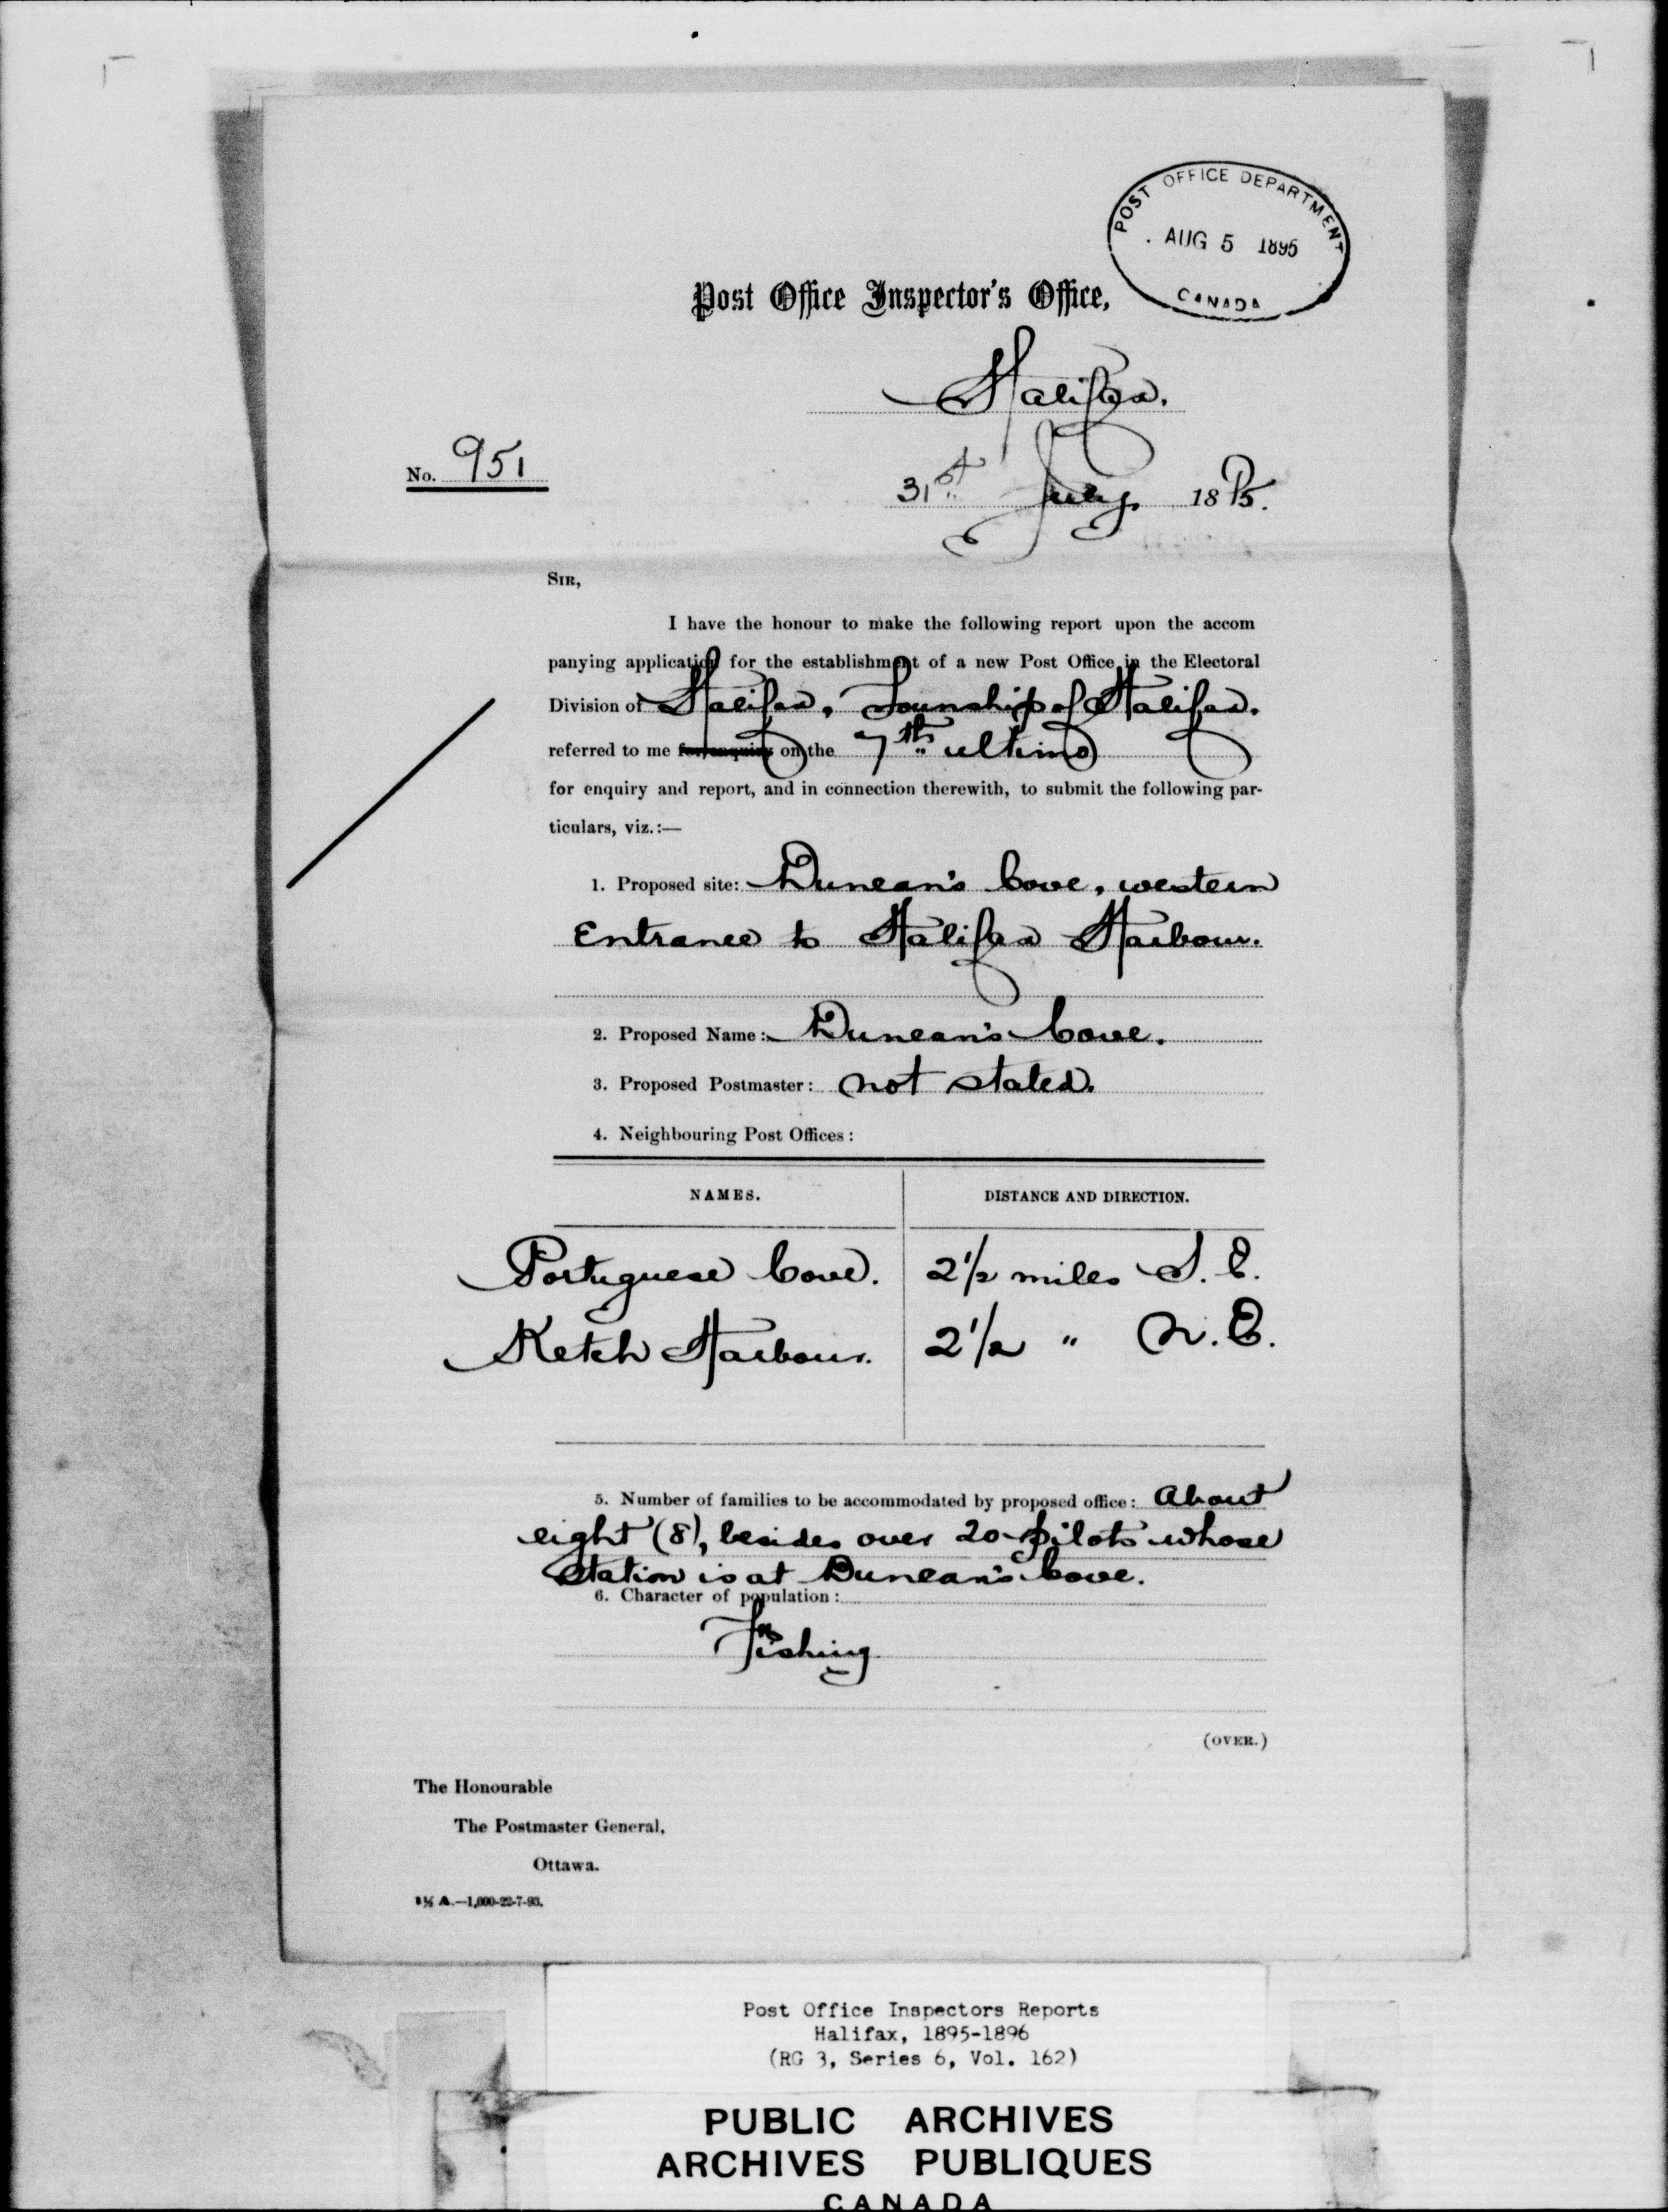 POST OFFICE DEPARTMENT
AUG 5 1895
CANADA
Post Office Inspector's Office,
Halifax.
No. 951
31st July, 1895.
SIR,
I have the honour to make the following report upon the accom
panying application for the establishment of a new Post Office in the Electoral
Division of Halifax, Township of Halifax.
referred to me for enquiry on the 7th ultimo
for enquiry and report, and in connection therewith, to submit the following par-
ticulars, viz.:—
1. Proposed site: Duncan's Cove, western
Entrance to Halifax Harbour.
2. Proposed Name: Duncan's Cove.
3. Proposed Postmaster: not stated.
4. Neighbouring Post Offices:
NAMES. DISTANCE AND DIRECTION.
Portuguese Cove. 2 1/2 miles S. E.
Ketch Harbour. 2 1/2 " N. E.
5. Number of families to be accommodated by proposed office: About
eight (8), besides over 20 pilots whose
Station is at Duncan's Cove.
6. Character of population:
Fishing
(OVER.)
The Honourable
The Postmaster General,
Ottawa.
A.—1,000-22-7-93.
Post Office Inspectors Reports
Halifax, 1895-1896
(RG 3, Series 6, Vol. 162)
PUBLIC ARCHIVES
ARCHIVES PUBLIQUES
CANADA